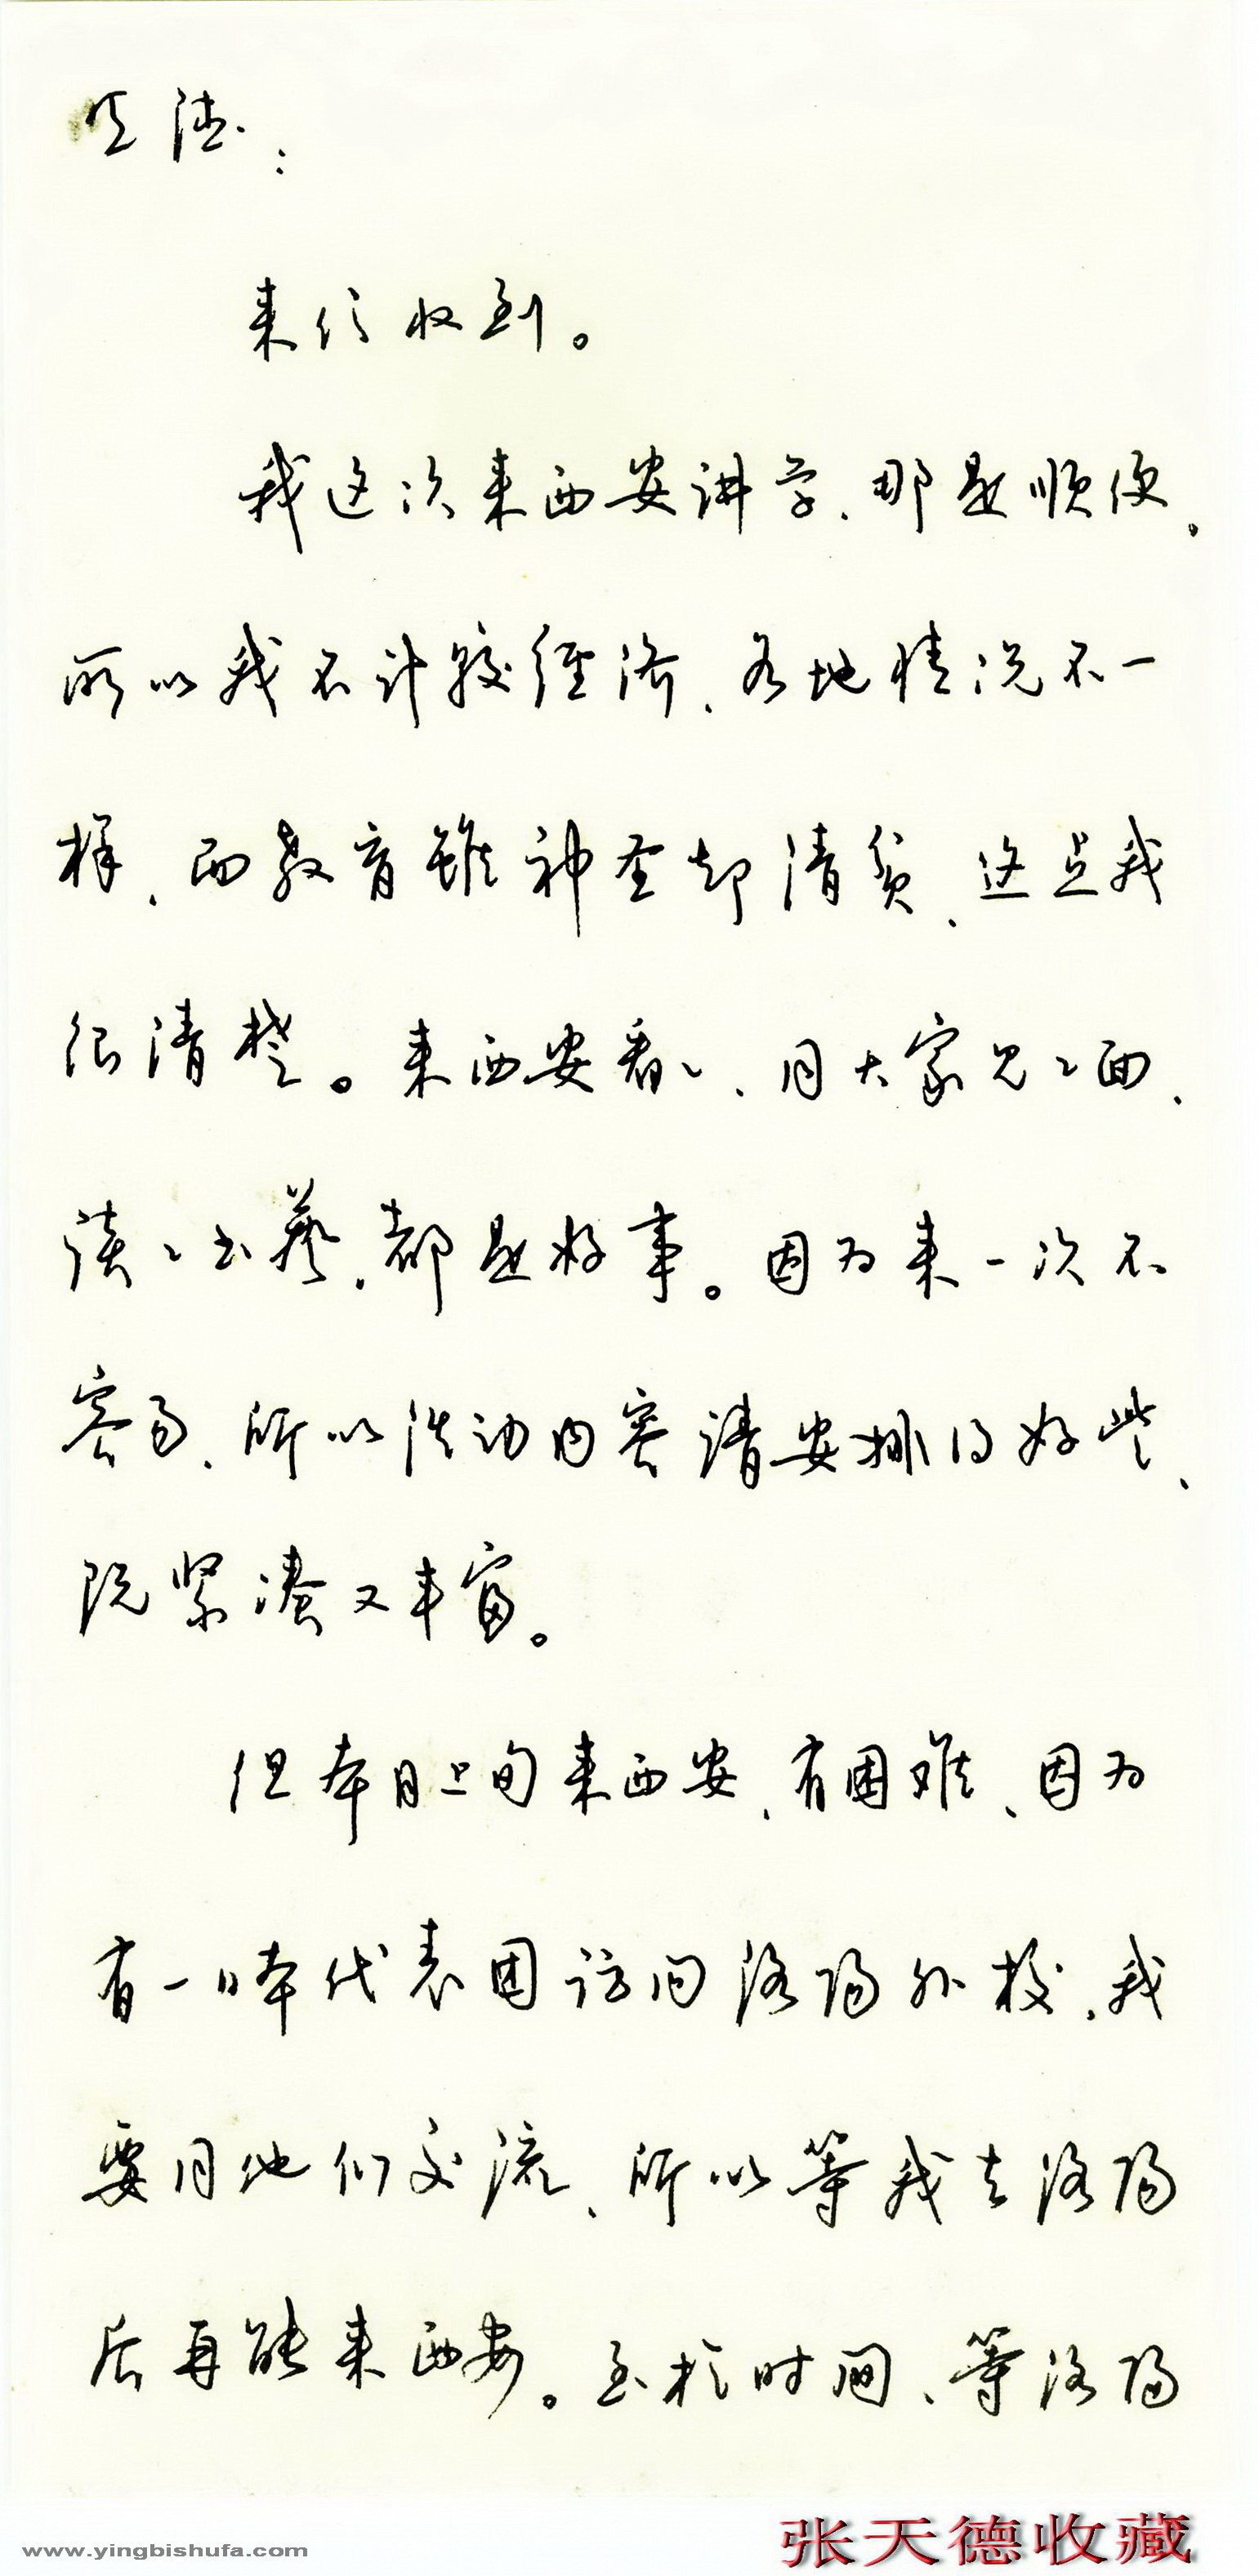 天德：
来信收到。
我这次来西安讲学、那是顺便。
所以我不计较经济、各地情况不一
样、而教育虽神圣却清贫、这点我
很清楚。来西安看〻、同大家见〻面、
谈〻书艺、都是好事。因为来一次不
容易、所以活动内容请安排得好些、
既紧凑又丰富。
但本月上旬来西安、有困难、因为
有一日本代表团访问洛阳外校、我
要同他们交流、所以等我去洛阳
后再能来西安。至于时间、等洛阳
张天德收藏
www.yingbishufa.com